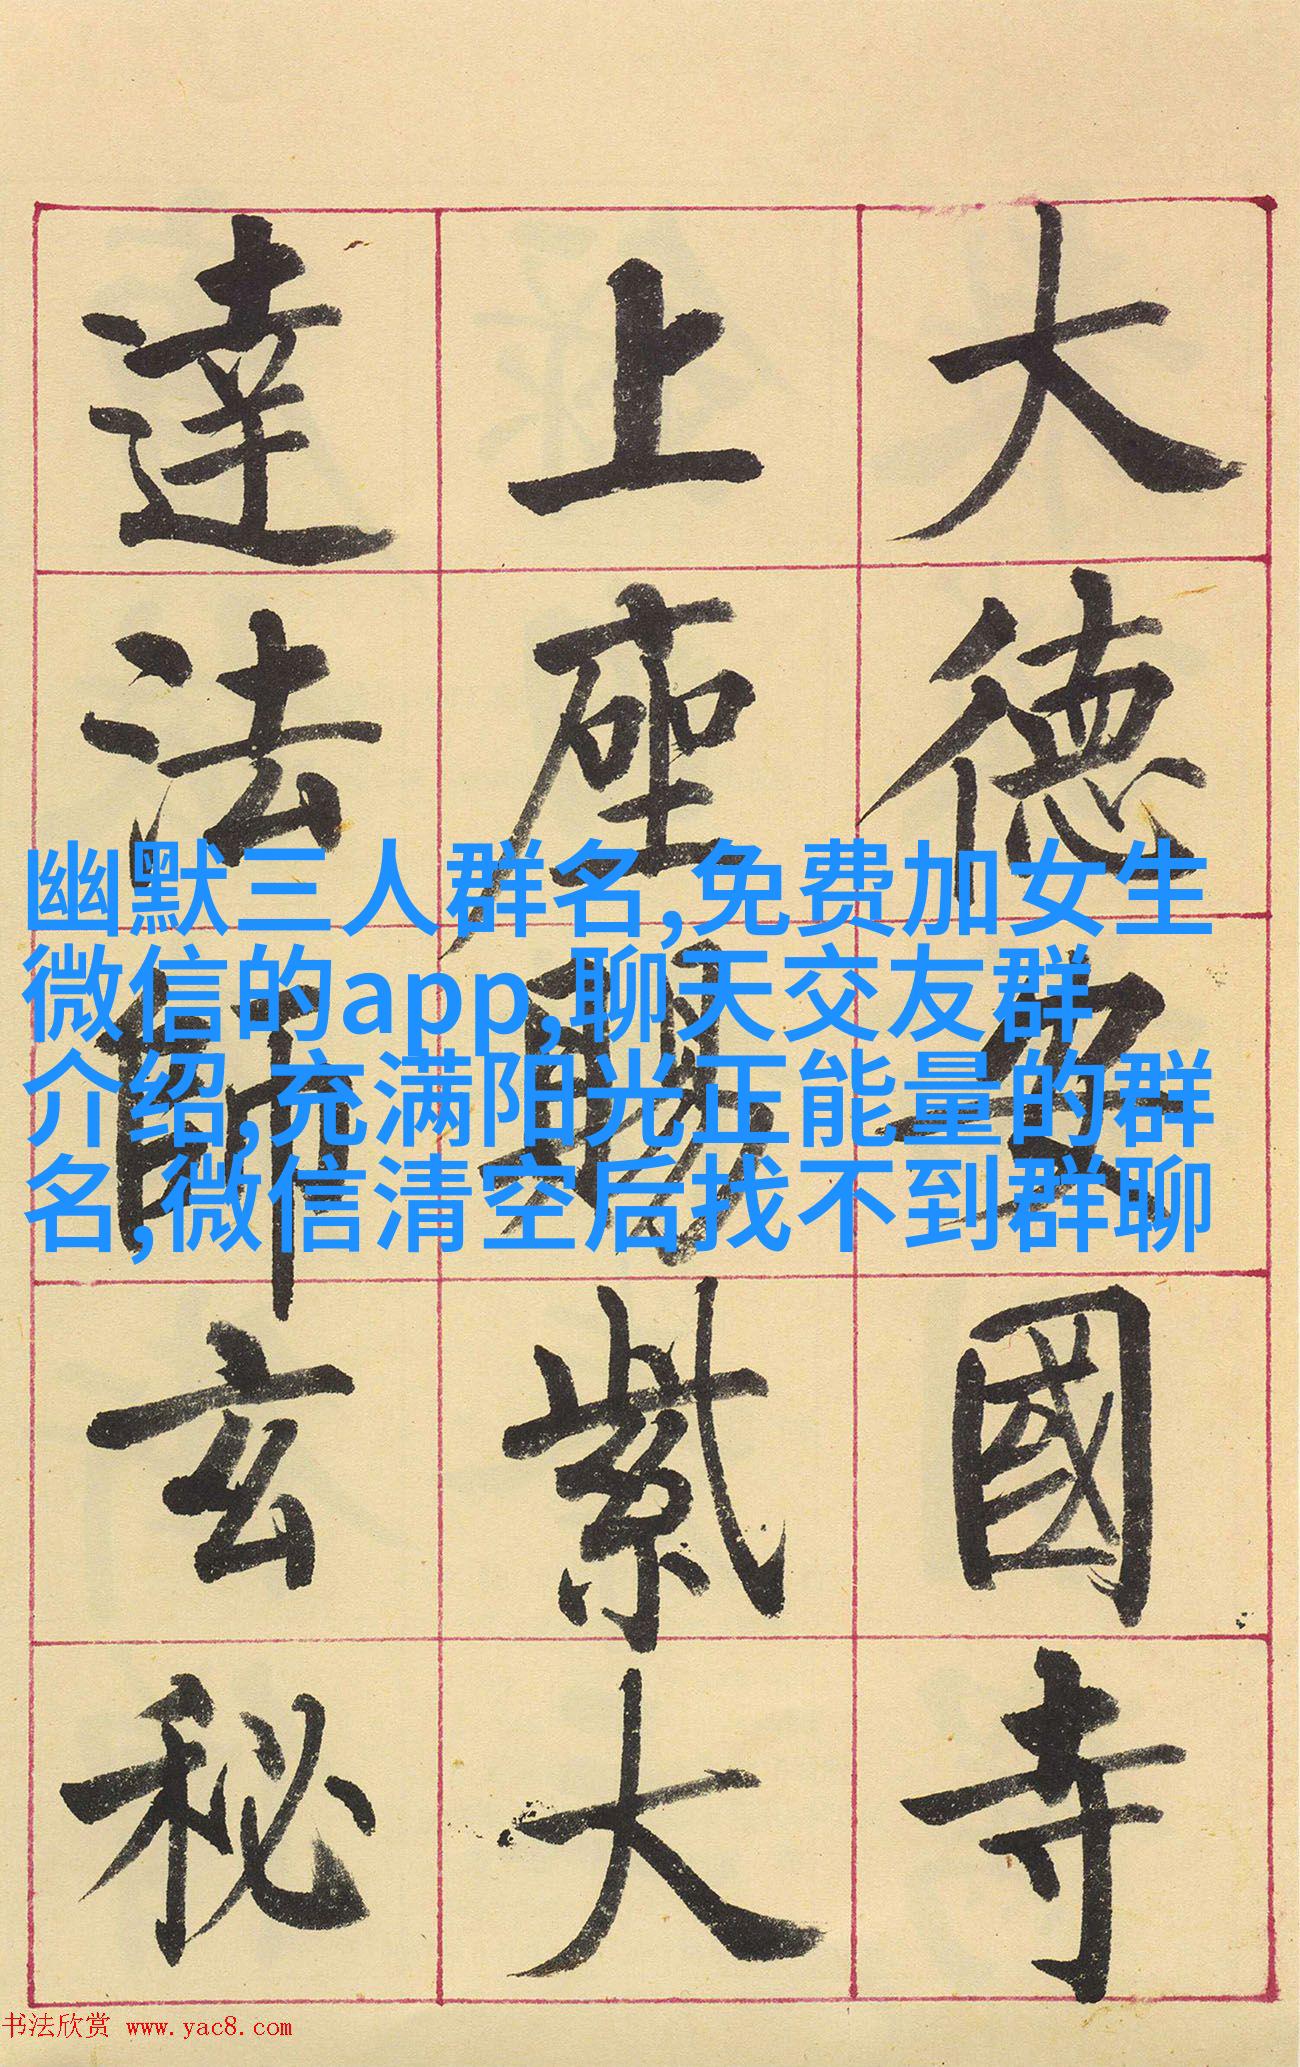 大德安國寺
上座賜紫大
達法師玄秘
幽默三人群名,免费加女生
微信的app,聊天交友群
介绍,充满阳光正能量的群
名,微信清空后找不到群聊
书法欣赏 www.yac8.com